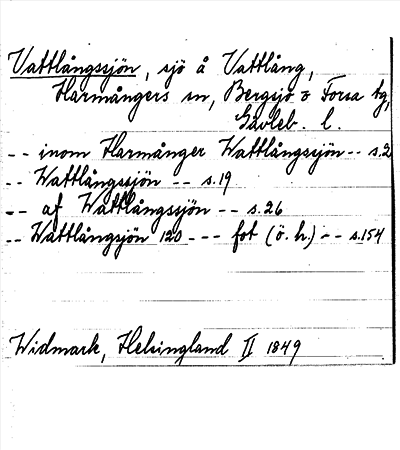 Vattlångssjön, sjö å Vattlång,
Harmångers sn, Bergsjö o Forsa tg,
Gävleb. l.
-- inom Harmånger Wattlångssjön -- s.2
-- Wattlångssjön -- s.19
-- af Wattlångssjön -- s.26
-- Wattlångsjön 120 --- fot (ö. h.) -- s.154
Widmark, Helsingland II 1849